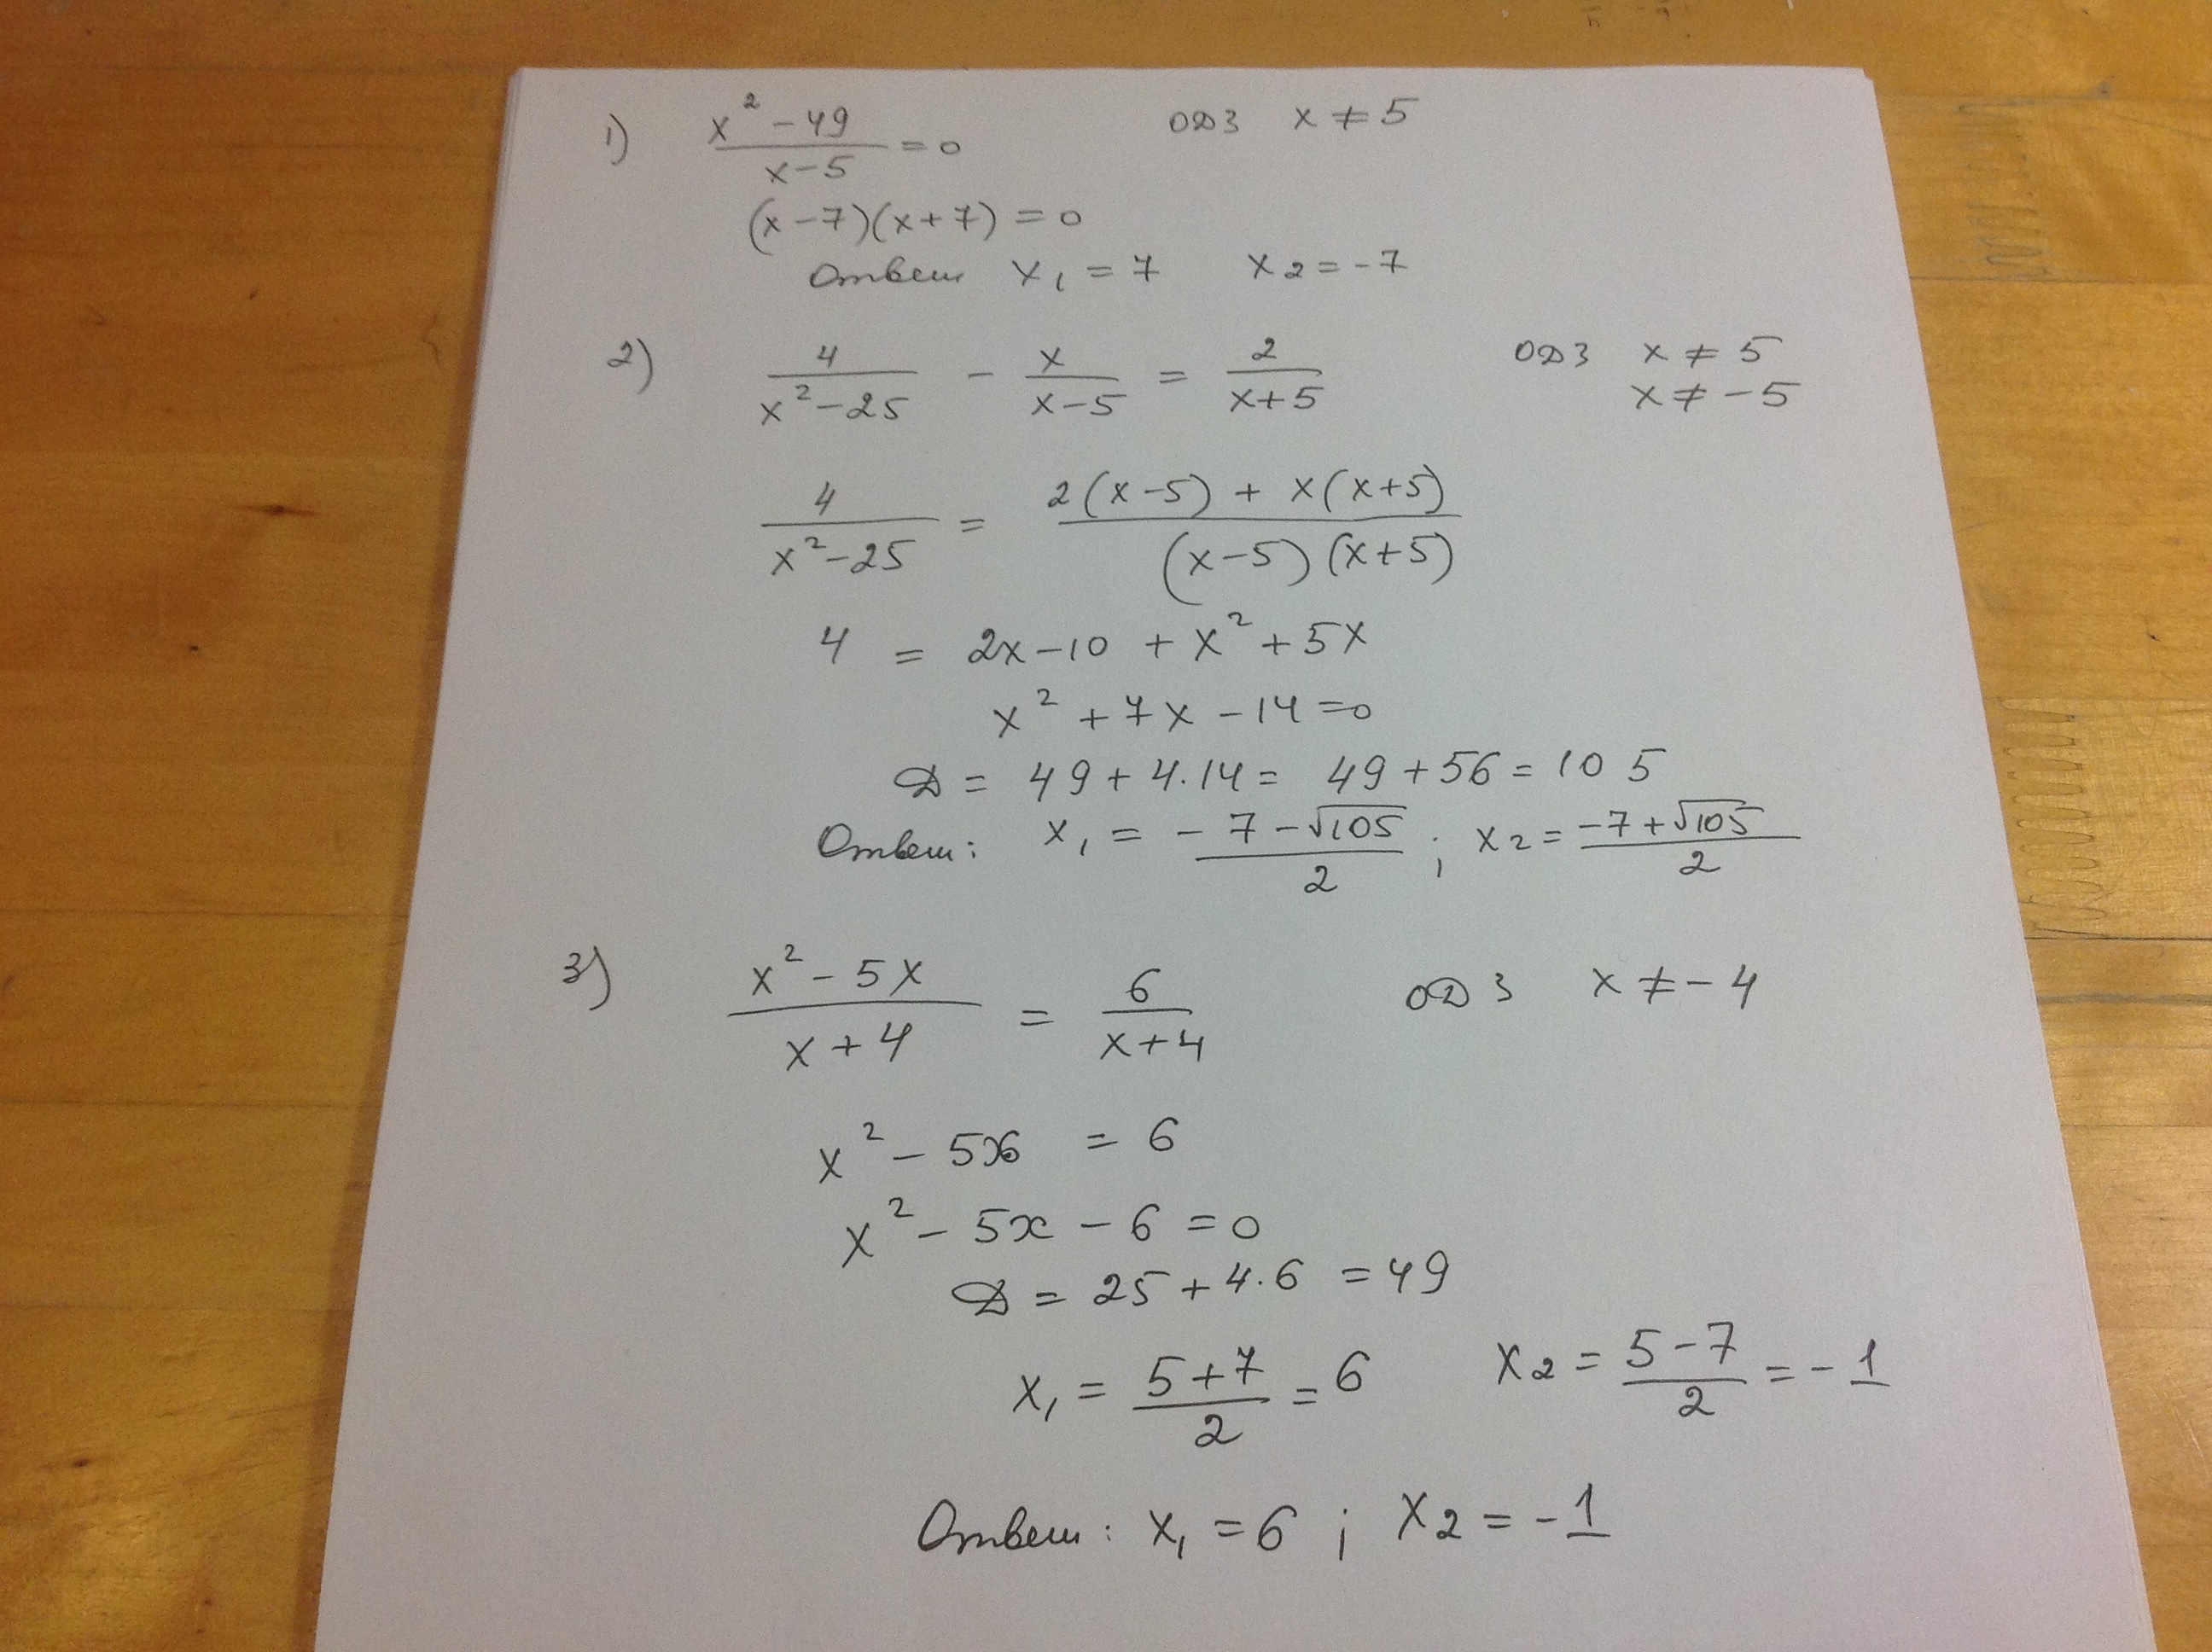 1) (x² - 49)/(x - 5) = 0 ОДЗ x ≠ 5
(x - 7)(x + 7) = 0
Ответ x₁ = 7 x₂ = -7
2) 4/(x² - 25) - x/(x - 5) = 2/(x + 5) ОДЗ x ≠ 5
x ≠ -5
4/(x² - 25) = (2(x - 5) + x(x + 5))/((x - 5)(x + 5))
4 = 2x - 10 + x² + 5x
x² + 7x - 14 = 0
D = 49 + 4·14 = 49 + 56 = 105
Ответ: x₁ = (-7 - √105)/2 ; x₂ = (-7 + √105)/2
3) (x² - 5x)/(x + 4) = 6/(x + 4) ОДЗ x ≠ -4
x² - 5x = 6
x² - 5x - 6 = 0
D = 25 + 4·6 = 49
x₁ = (5 + 7)/2 = 6 x₂ = (5 - 7)/2 = -1
Ответ: x₁ = 6 ; x₂ = -1